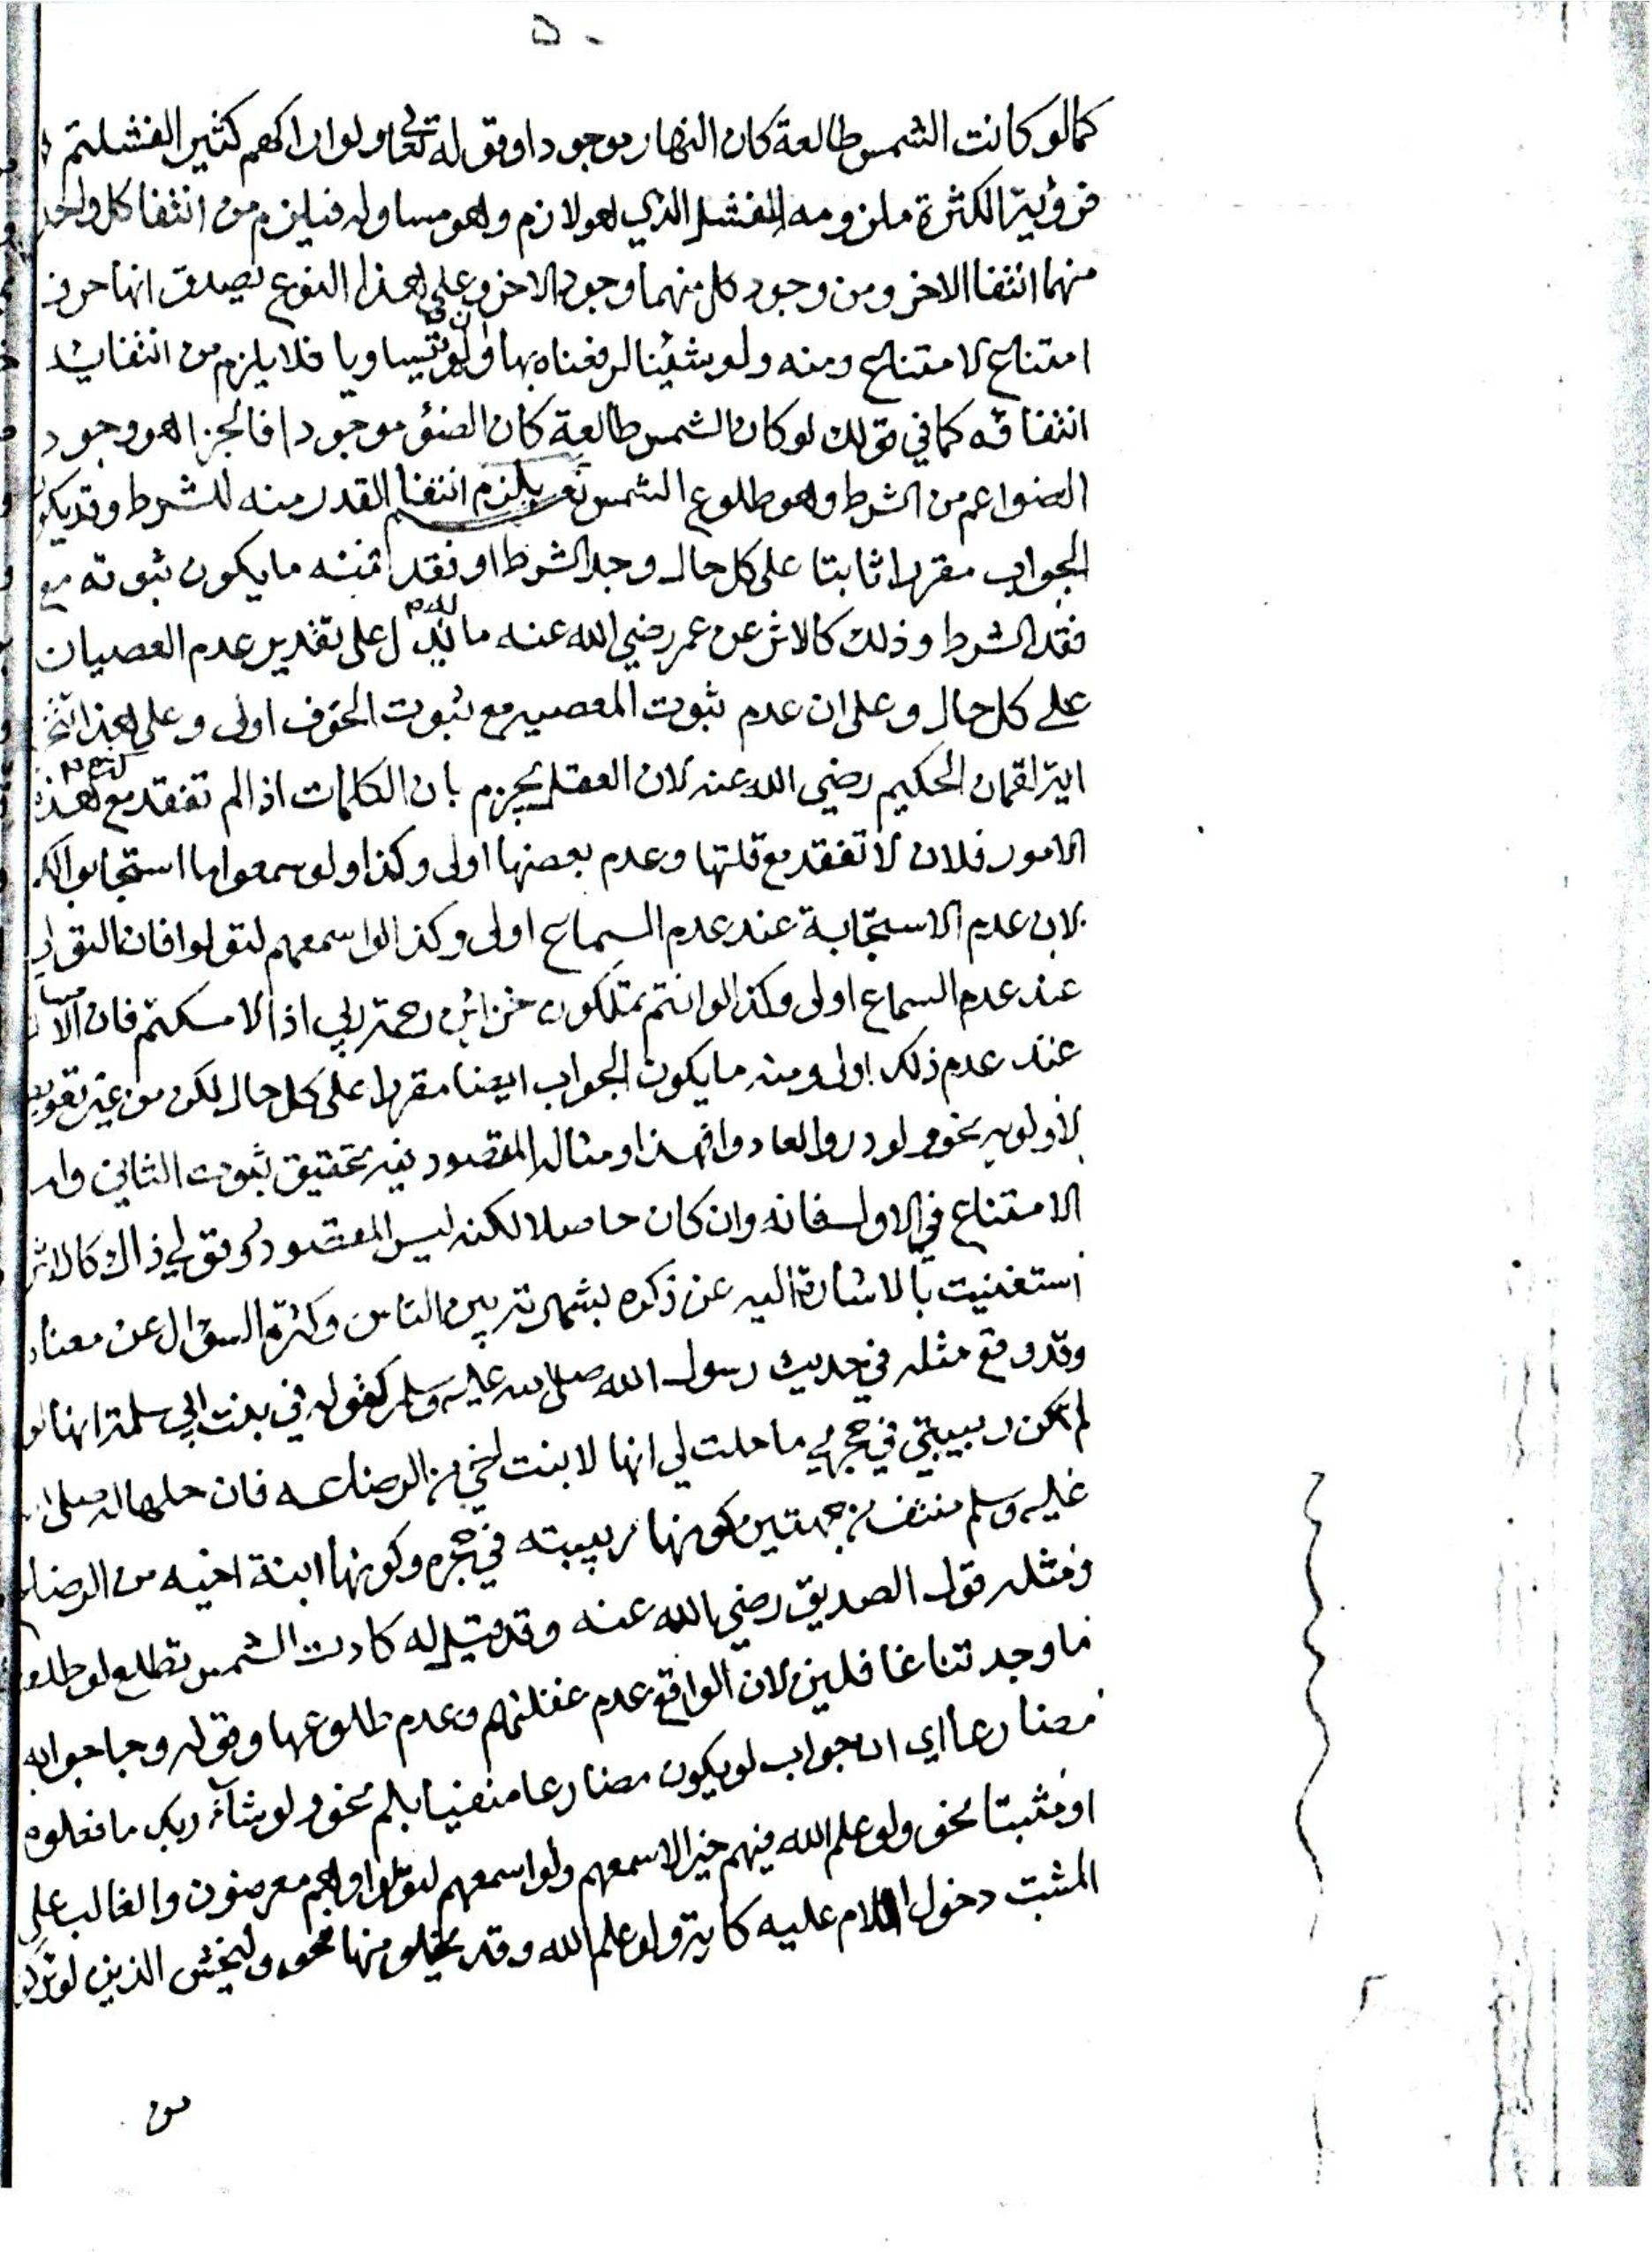 ٥٠
كمالو كانت الشمس طالعة كان النهار موجودا وقوله تعالى ولو اراكهم كثيرا لفشلتم
فرؤية الكثرة ملزومه للفشل الذي هو لازم وهو مساو له فيلزم من انتفا كل واحد
منهما انتفا الاخر ومن وجود كل منهما وجود الاخر وعلى هذا النوع يصدق انها حرف
امتناع لامتناع ومنه ولو شئنا لرفعناه بها وان لم يتساويا فلا يلزم من انتفائه
انتفاؤه كما في قولك لو كان الشمس طالعة كان الضؤ موجودا فالجزا هو وجود
الضوا عم من الشرط وهو طلوع الشمس نعم يلزم انتفا القدر منه للشرط وقد يكون
الجواب مقررا ثابتا على كل حال وجد الشرط او فقد فمنه ما يكون ثبوته مع
فقد الشرط وذلك كالاثر عن عمر رضي الله عنه مانه يدل على تقدير عدم العصيان
على كل حال وعلى ان عدم ثبوت المعصيه مع ثبوت الخوف اولى وعلى هذا
اية لقمان الحكيم رضي الله عنه لان العقل يجزم بان الكلمات اذا لم تنفد مع كثرة هذه
الامور فلان لا تنفد مع قلتها وعدم بعضها اولى وكذا ولو سمعوا ما استجابوا لكم
لان عدم الاستجابة عند عدم السماع اولى وكذا لو اسمعهم لتولوا فان التولي
عند عدم السماع اولى وكذا لو انتم تملكون خزائن رحمة ربي اذا لامسكتم فان الامساك
عند عدم ذلك اولى ومنه ما يكون الجواب ايضا مقررا على كل حال لكن من غير تعرض
لاولويه نحو ولو ردوا لعادوا فهذا ومثاله المقصود فيه تحقيق ثبوت الثاني واما
الامتناع في الاول فانه وان كان حاصلا لكنه ليس المقصود وقولي ذاك كالاثر
استغنيت بالاشارة اليه عن ذكره بشهرته بين الناس وكثرة السؤال عن معناه
وقد وقع مثله في حديث رسول الله صلى الله عليه وسلم كقوله في بنت ابي سلمة انها لو
لم تكن ربيبتي في حجري ما حلت لي انها لابنت اخي من الرضاعه فان حلها له صلى الله
عليه وسلم منتف من جهتين كونها ربيبته في حجره وكونها ابنة اخيه من الرضاع
ومثله قول الصديق رضي الله عنه وقد قيل له كادت الشمس تطلع لو طلعت
ما وجدتنا غافلين لان الواقع عدم غفلتهم وعدم طلوعها وقوله وجا جوابه
مضارعا اي ان جواب لو يكون مضارعا منفيا بلم نحو ولو شاء ربك ما فعلوه
او مثبتا نحو ولو علم الله فيهم خيرا لاسمعهم ولو اسمعهم لتولوا وهم معرضون والغالب على
المثبت دخول اللام عليه كاية ولو علم الله وقد يخلو منها نحو وليخش الذين لو تركوا
من